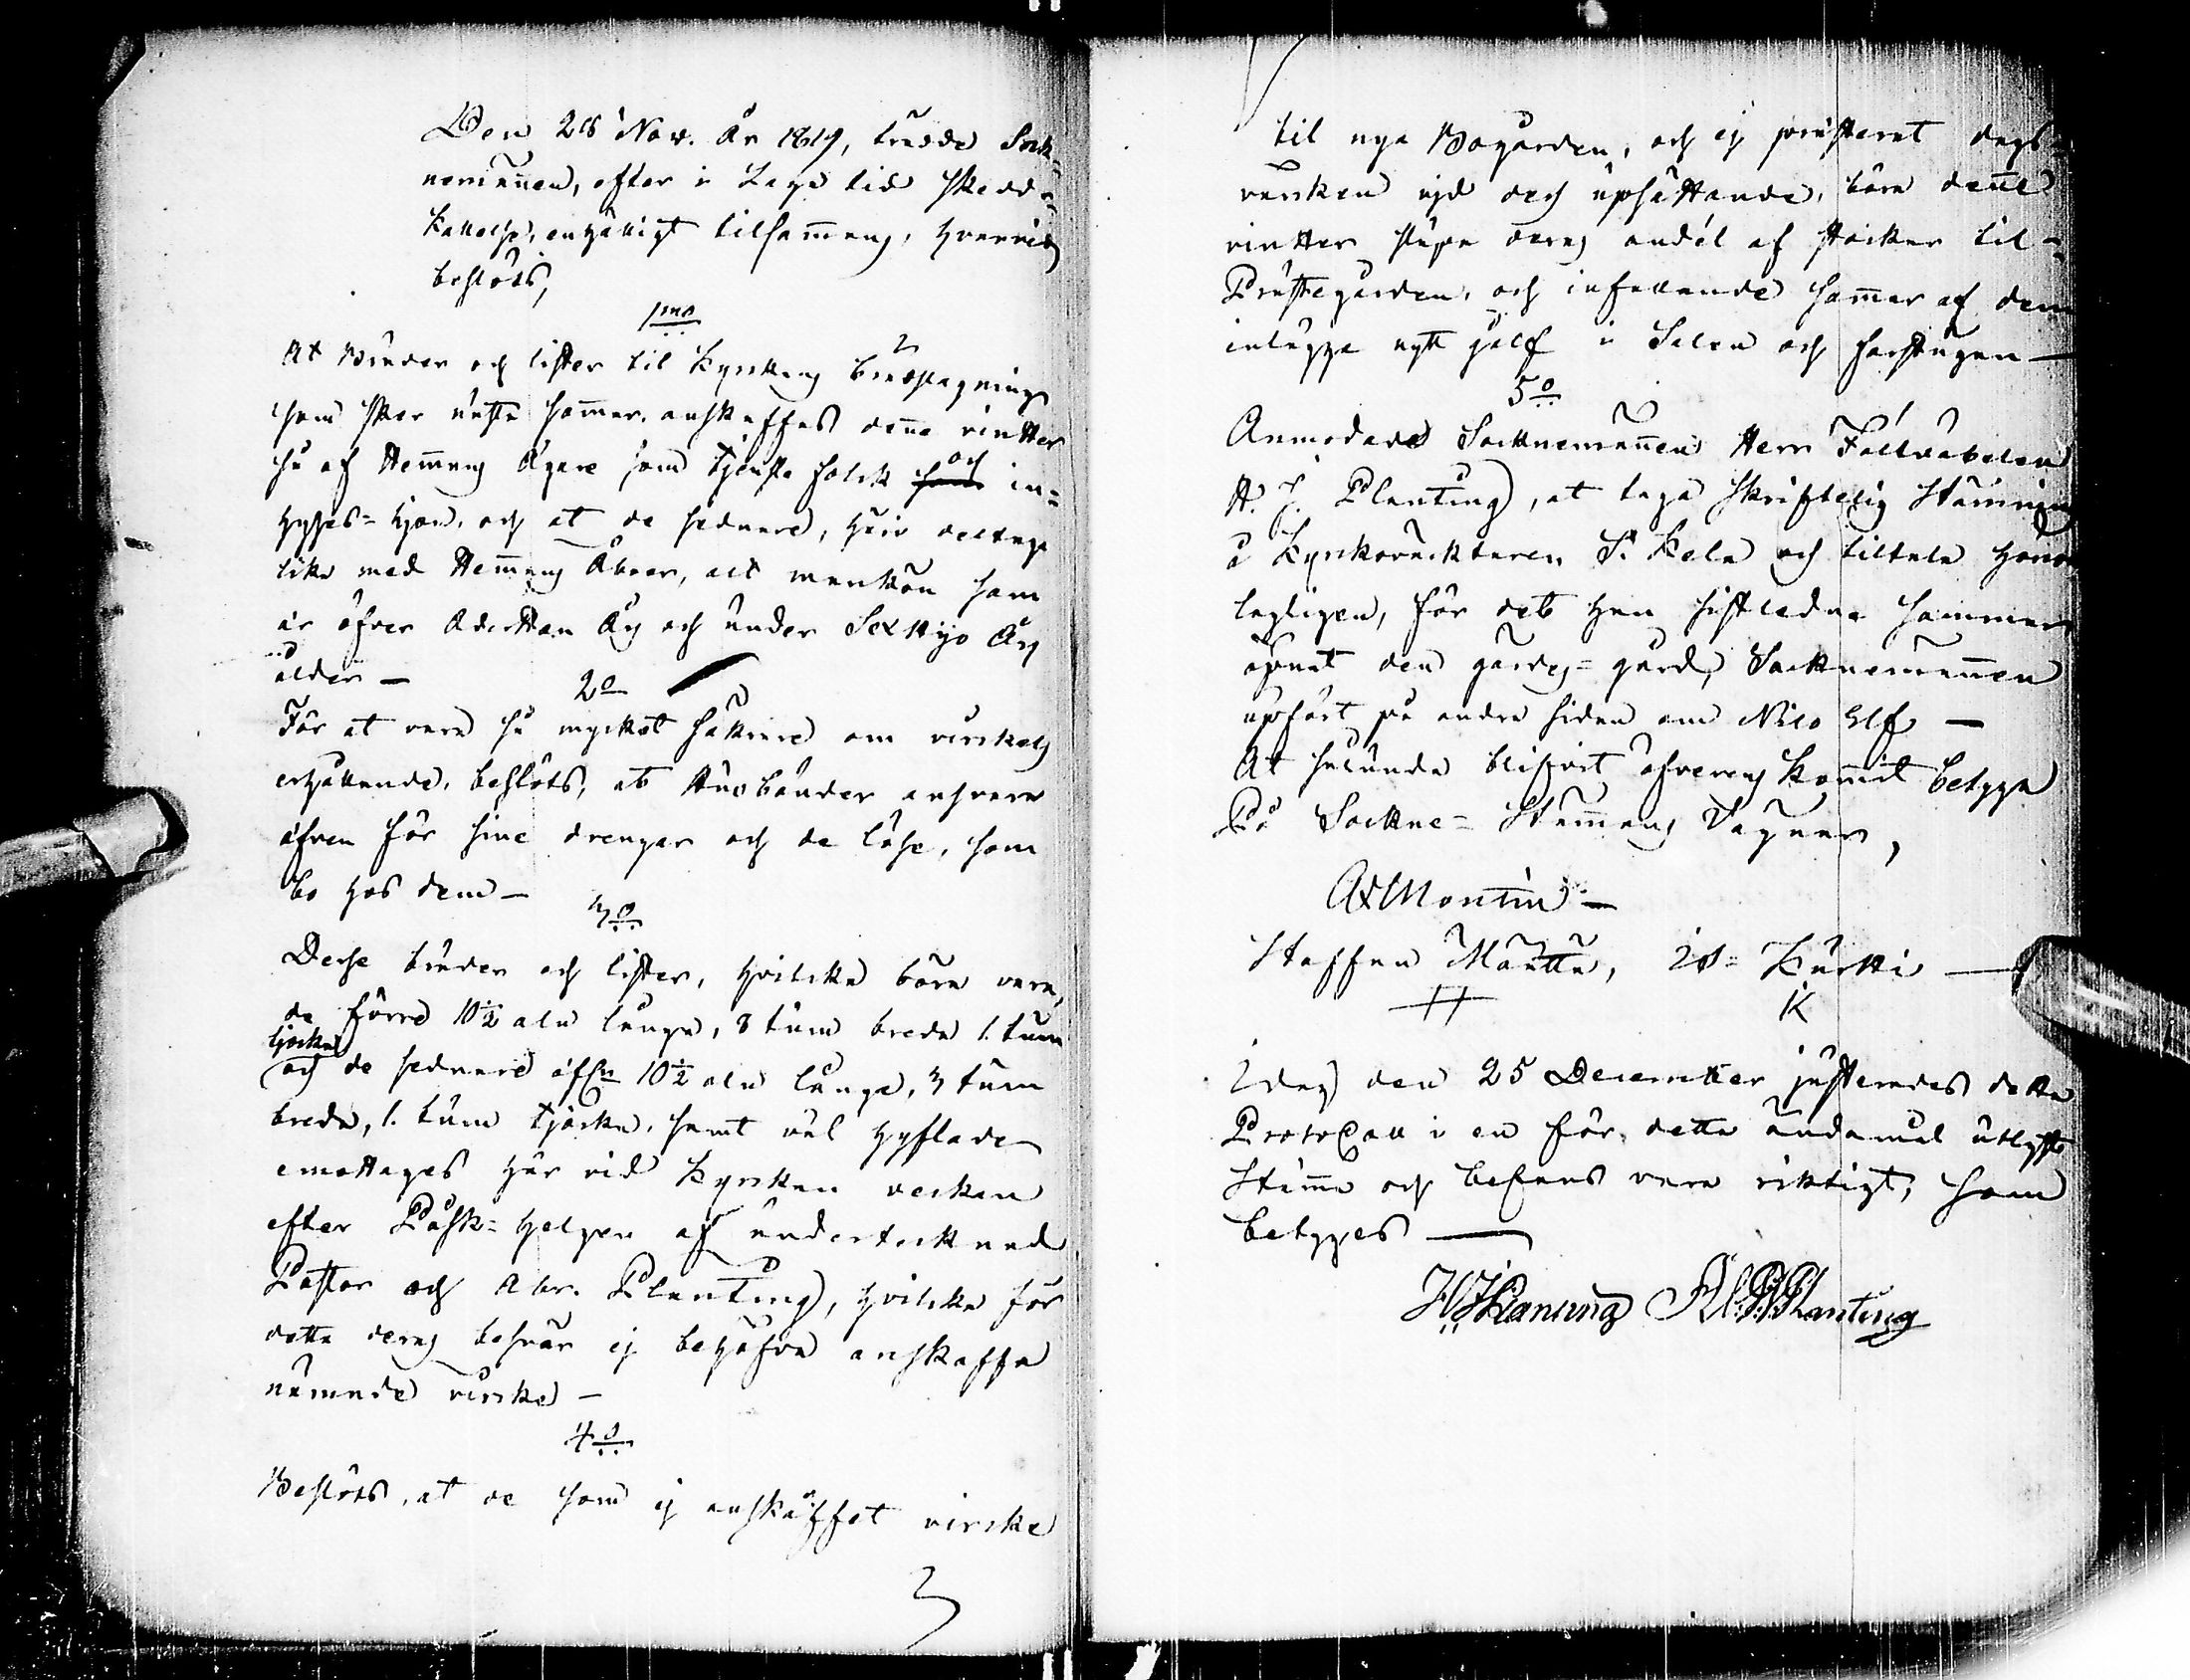 Den 28 Nov. År 1819, trädde Sock=
nemännen, efter i Laga tid skedd
Kallelse, enhälligt tilsammans, hvarvid
beslöts,
1mo
At Bräder och lister til Kyrkans brädslagning
som sker nästa sommar, anskaffas denna vintter
så af Hemmans Ägare som tjenste folck och in=
hyses=hjon, och at de sednare, häri deltaga
lika med Hemmans Åboer, alt mankön som
är öfver Aderttan Års och under Sexttijo Års
ålder —
2o
För at vara så myckot säkrare om virskets
erhållande, beslöts, at Husbönder ansvara
äfven för sine drengar och de löse, som
bo hos dem —
3o
Desse bräder och lister, hvilcka böra vara,
de förre 10½ aln långa, 8 tum breda 1. tum
tjocka
och de sednare äfven 10½ aln långa, 3 tum
breda, 1. tum tjocka, samt väl hyflade
emottages här vid Kyrkan veckan
efter Påsk=helgen af undertecknad
Pastor och Abr. Planting, hvilcka för
detta deras besvär ej behöfva anskaffa
nämnde virske —
4o
Beslöts, at de som ej anskaffat virske
til nya Bogården, och ej præsterat dags=
vercken vid dess upsättande, böra denna
vintter släpa deras andel af stockar til
Prästegården, och infallande sommar af dem
inlägga nytt golf i Salen och farstugan —
5o
Anmodade Socknemännen Herr Fältväbelen
H. J. Planting, at taga skriftelig stämning
å Kyrkoväcktaren P. Kela och tiltala honom
lagligen, för det han sistledne sommar
öpnat den gärdes=gård, Socknemännen
upfört på andra sidan om Nilo Elf —
At sålunda blifvit öfverens kommit betyga
På Sockne=Stämmans Vägnar,
A Montin —
Staffan Mäntta, Is= Kurtti —
H K
I dag den 25 December justerades detta
Protocoll i en för detta ändamål utlyst
Stämma och befans vara riktigt, som
betyges —
H J Planting Ab. Planting